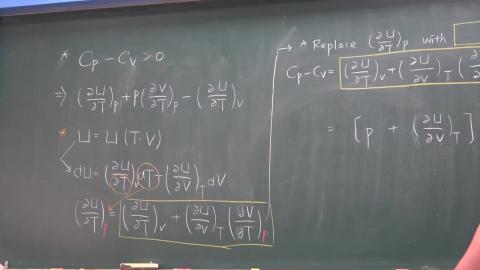 * Cp - Cv > 0
⇒ (∂U/∂T)p + p(∂V/∂T)p - (∂U/∂T)v
* U = U(T·V)
dU = (∂U/∂T)v dT + (∂U/∂V)T dV
(∂U/∂T)p = (∂U/∂T)v + (∂U/∂V)T (∂V/∂T)p
→ * Replace (∂U/∂T)p with
Cp - Cv = (∂U/∂T)v + (∂U/∂V)T
= [p + (∂U/∂V)T]